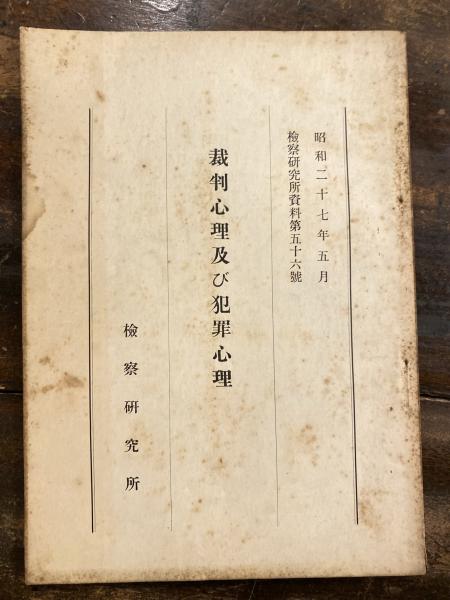 昭和二十七年五月
檢察研究所資料第五十六號
裁判心理及び犯罪心理
檢察研究所